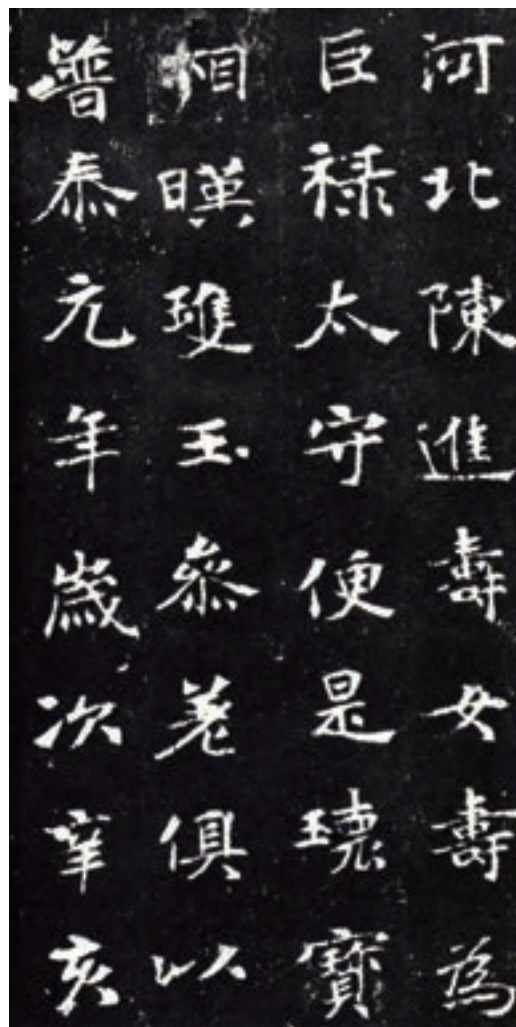 河北陳進壽女壽為
巨祿太守便是瓌寶
相暎瓊玉叅差俱以
普泰元年歲次辛亥